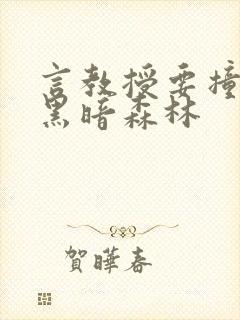 言教授要撞
黑暗森林
賀曄春